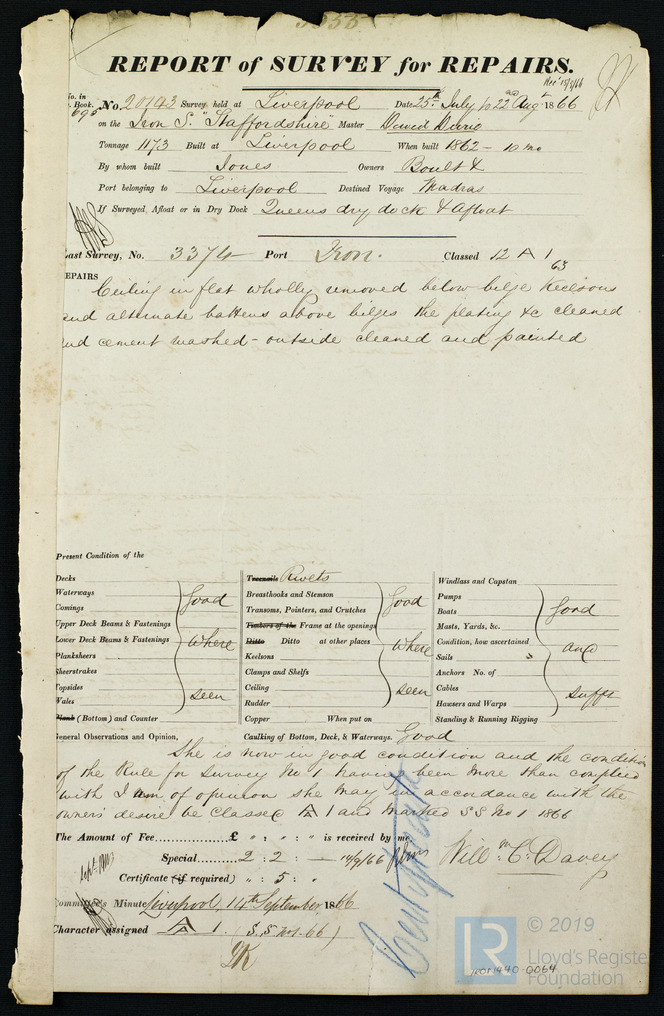 REPORT of SURVEY for REPAIRS.
Rec' 15/9/66
No. in
Book. No. 20143 Survey held at Liverpool Date 25th July to 22nd Aug 1866
695 on the Iron S. "Staffordshire" Master David
Tonnage 1173 Built at Liverpool When built 1862 - 10 mo
By whom built Jones Owners Boult &
Port belonging to Liverpool Destined Voyage Madras
If Surveyed, Afloat or in Dry Dock Queens dry dock & Afloat
Last Survey, No. 3374 Port Iron. Classed 12 A 1
63
REPAIRS
Ceiling in flat wholly removed below bilge Keelsons
and alternate battens above bilges the plating &c cleaned
and cement washed - outside cleaned and painted
Present Condition of the
Decks
Waterways
Comings
Upper Deck Beams & Fastenings
Lower Deck Beams & Fastenings
Planksheers
Sheerstrakes
Topsides
Wales
Plank (Bottom) and Counter
Good
where
seen
Treenails Rivets
Breasthooks and Stemson
Transoms, Pointers, and Crutches
Timbers of the Frame at the openings
Ditto Ditto at other places
Keelsons
Clamps and Shelfs
Ceiling
Rudder
Copper When put on
Good
where
seen
Windlass and Capstan
Pumps
Boats
Masts, Yards, &c.
Condition, how ascertained
Sails
Anchors No. of
Cables
Hawsers and Warps
Standing & Running Rigging
Good
and
Sufft
General Observations and Opinion, Caulking of Bottom, Deck, & Waterways. Good
She is now in good condition and the condition
of the Rule for Survey No 1 having been more than complied
with I am of opinion she may in accordance with the
owners' desire be Classed A 1 and marked S S No 1 1866
The Amount of Fee......£ " : " : " is received by me,
Special......2 : 2 : — 14/9/66
Will: m C. Davey
Certificate (if required) " : 5 : "
Committee's Minute Liverpool, 14th September 1866
Character assigned A 1 (S.S No1.66)
© 2019
LR
Lloyd's Register
Foundation
IRON440-0064